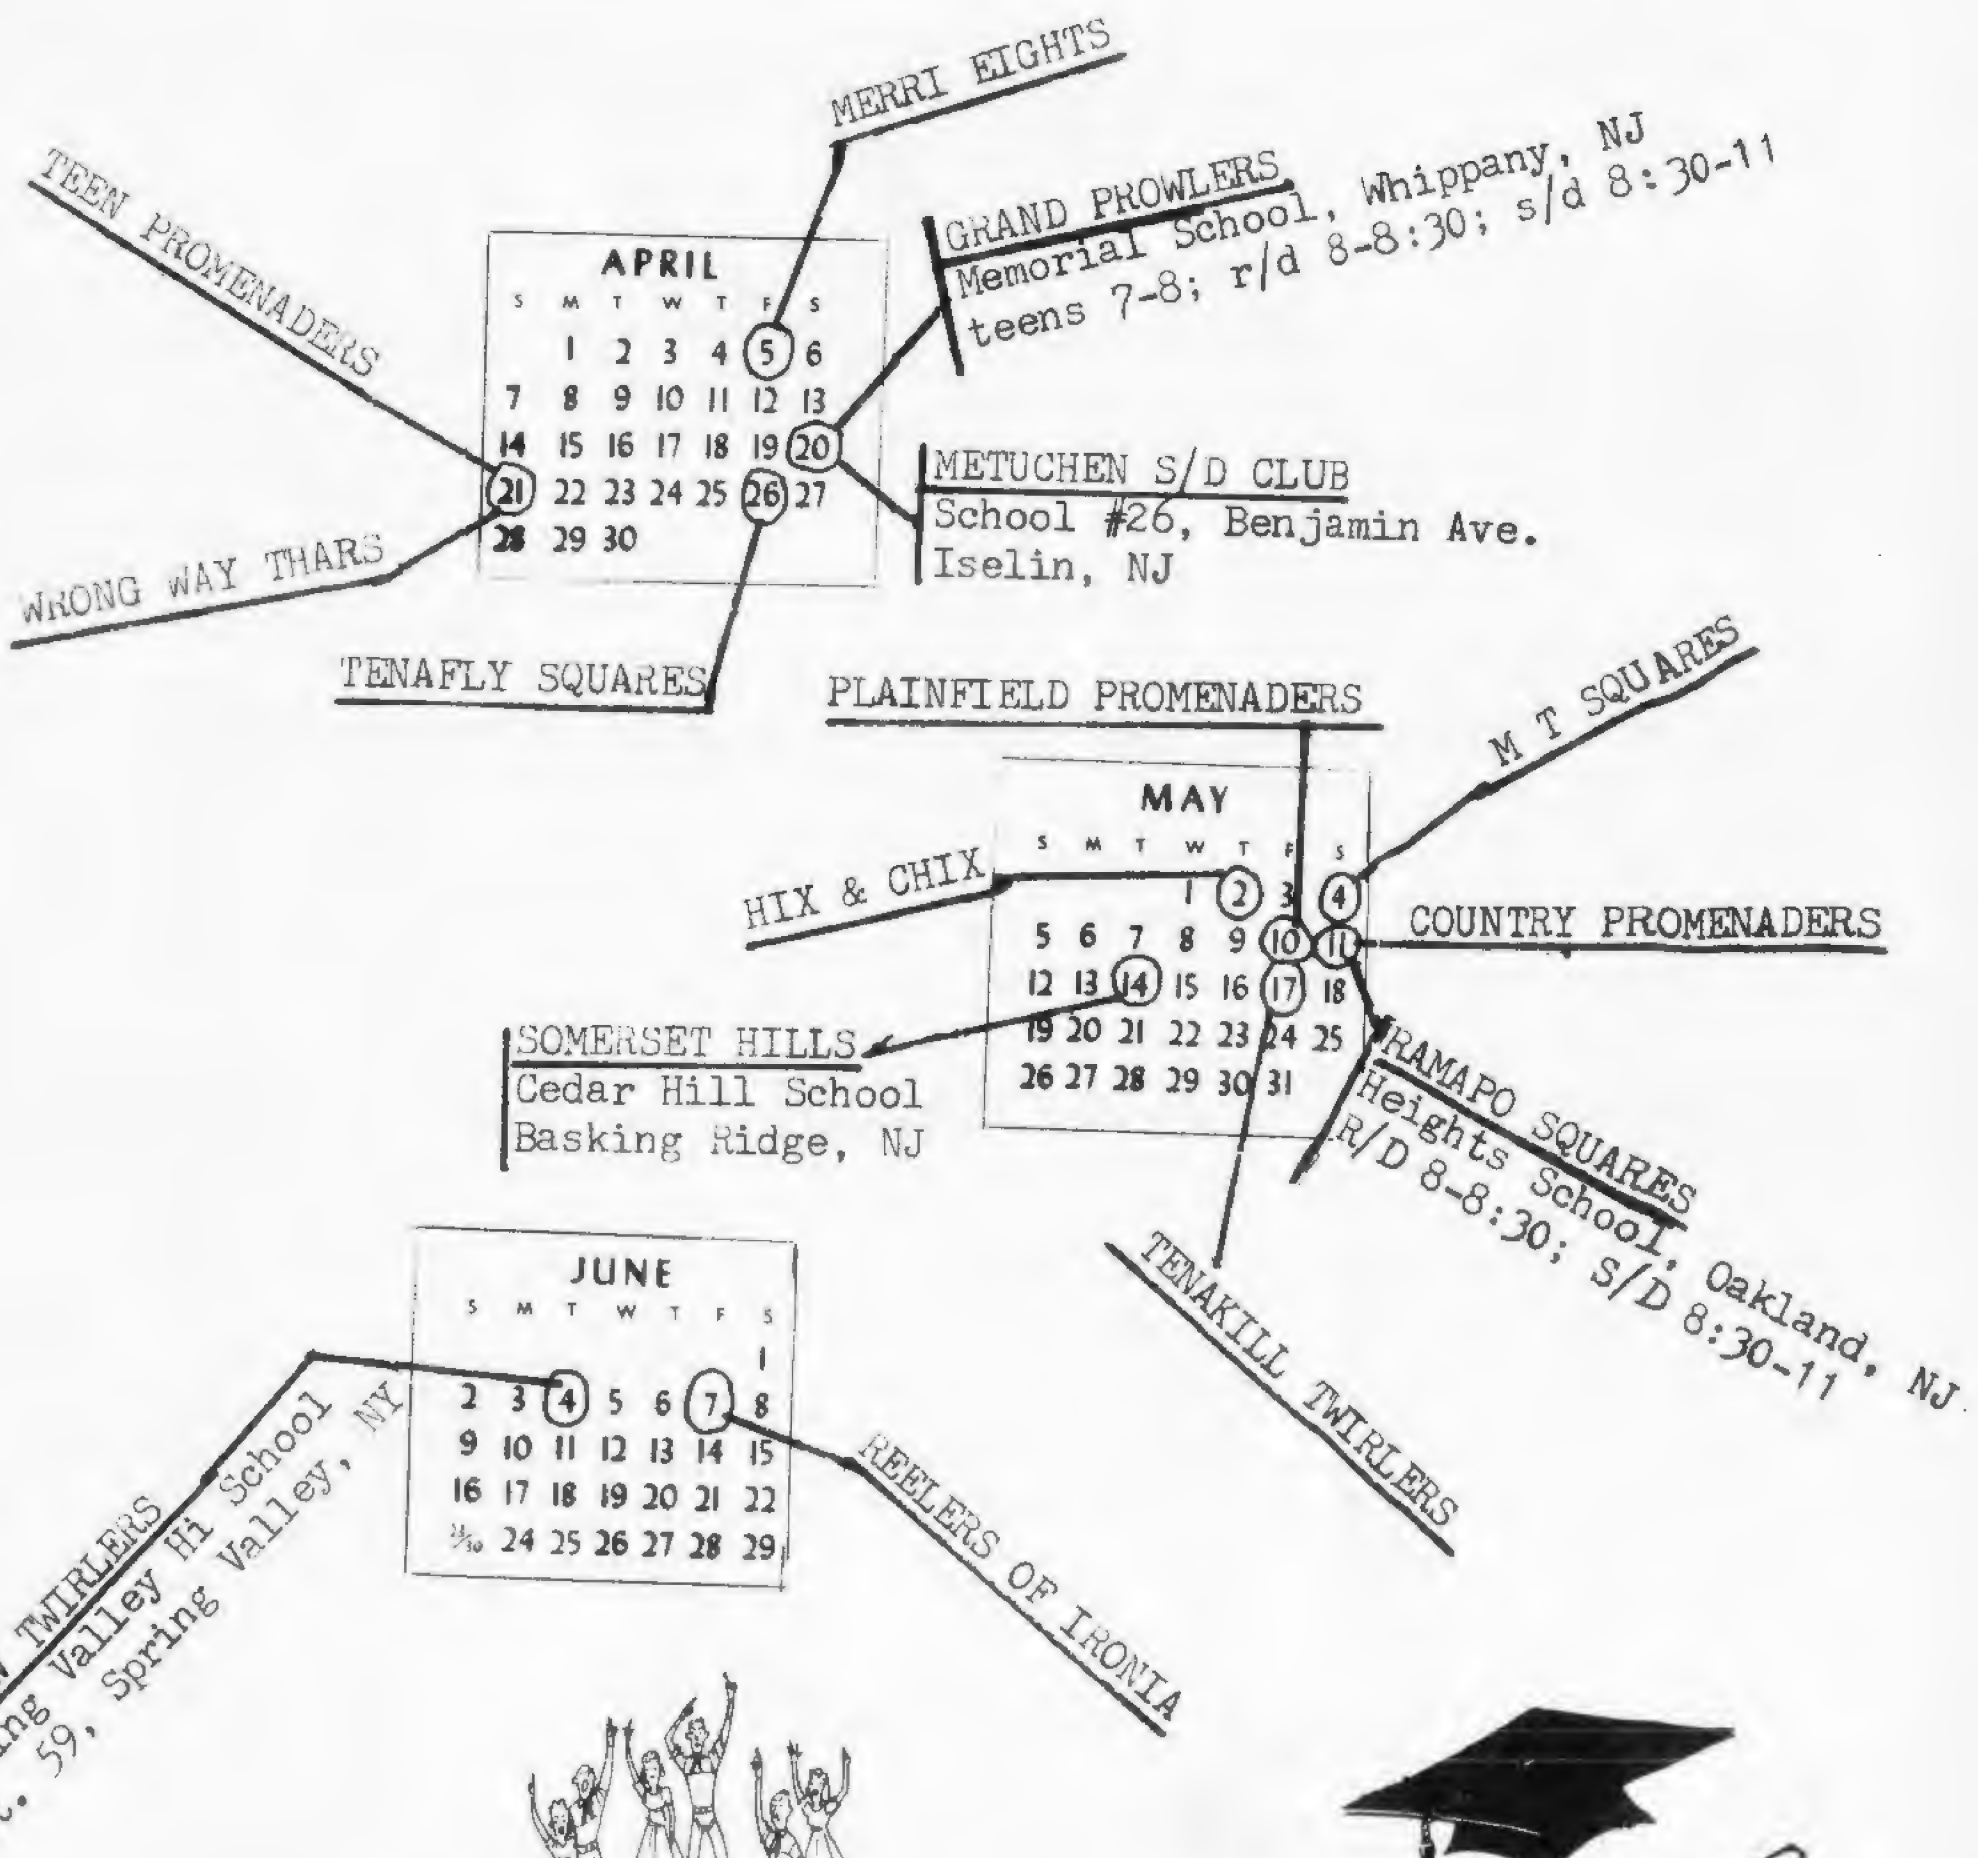 MERRI EIGHTS
TEEN PROMENADERS
GRAND PROWLERS
Memorial School, Whippany, NJ
teens 7-8; r/d 8-8:30; s/d 8:30-11
APRIL
S M T W T F S
1 2 3 4 5 6
7 8 9 10 11 12 13
14 15 16 17 18 19 20
21 22 23 24 25 26 27
28 29 30
METUCHEN S/D CLUB
School #26, Benjamin Ave.
Iselin, NJ
WRONG WAY THARS
TENAFLY SQUARES
PLAINFIELD PROMENADERS
M T SQUARES
MAY
S M T W T F S
1 2 3 4
5 6 7 8 9 10 11
12 13 14 15 16 17 18
19 20 21 22 23 24 25
26 27 28 29 30 31
HIX & CHIX
COUNTRY PROMENADERS
SOMERSET HILLS
Cedar Hill School
Basking Ridge, NJ
RAMAPO SQUARES
Heights School, Oakland, NJ
R/D 8-8:30; S/D 8:30-11
TENAKILL TWIRLERS
JUNE
S M T W T F S
1
2 3 4 5 6 7 8
9 10 11 12 13 14 15
16 17 18 19 20 21 22
23/30 24 25 26 27 28 29
REELERS OF IRONIA
TWIRLERS
Valley Hi School
59, Spring Valley, NY